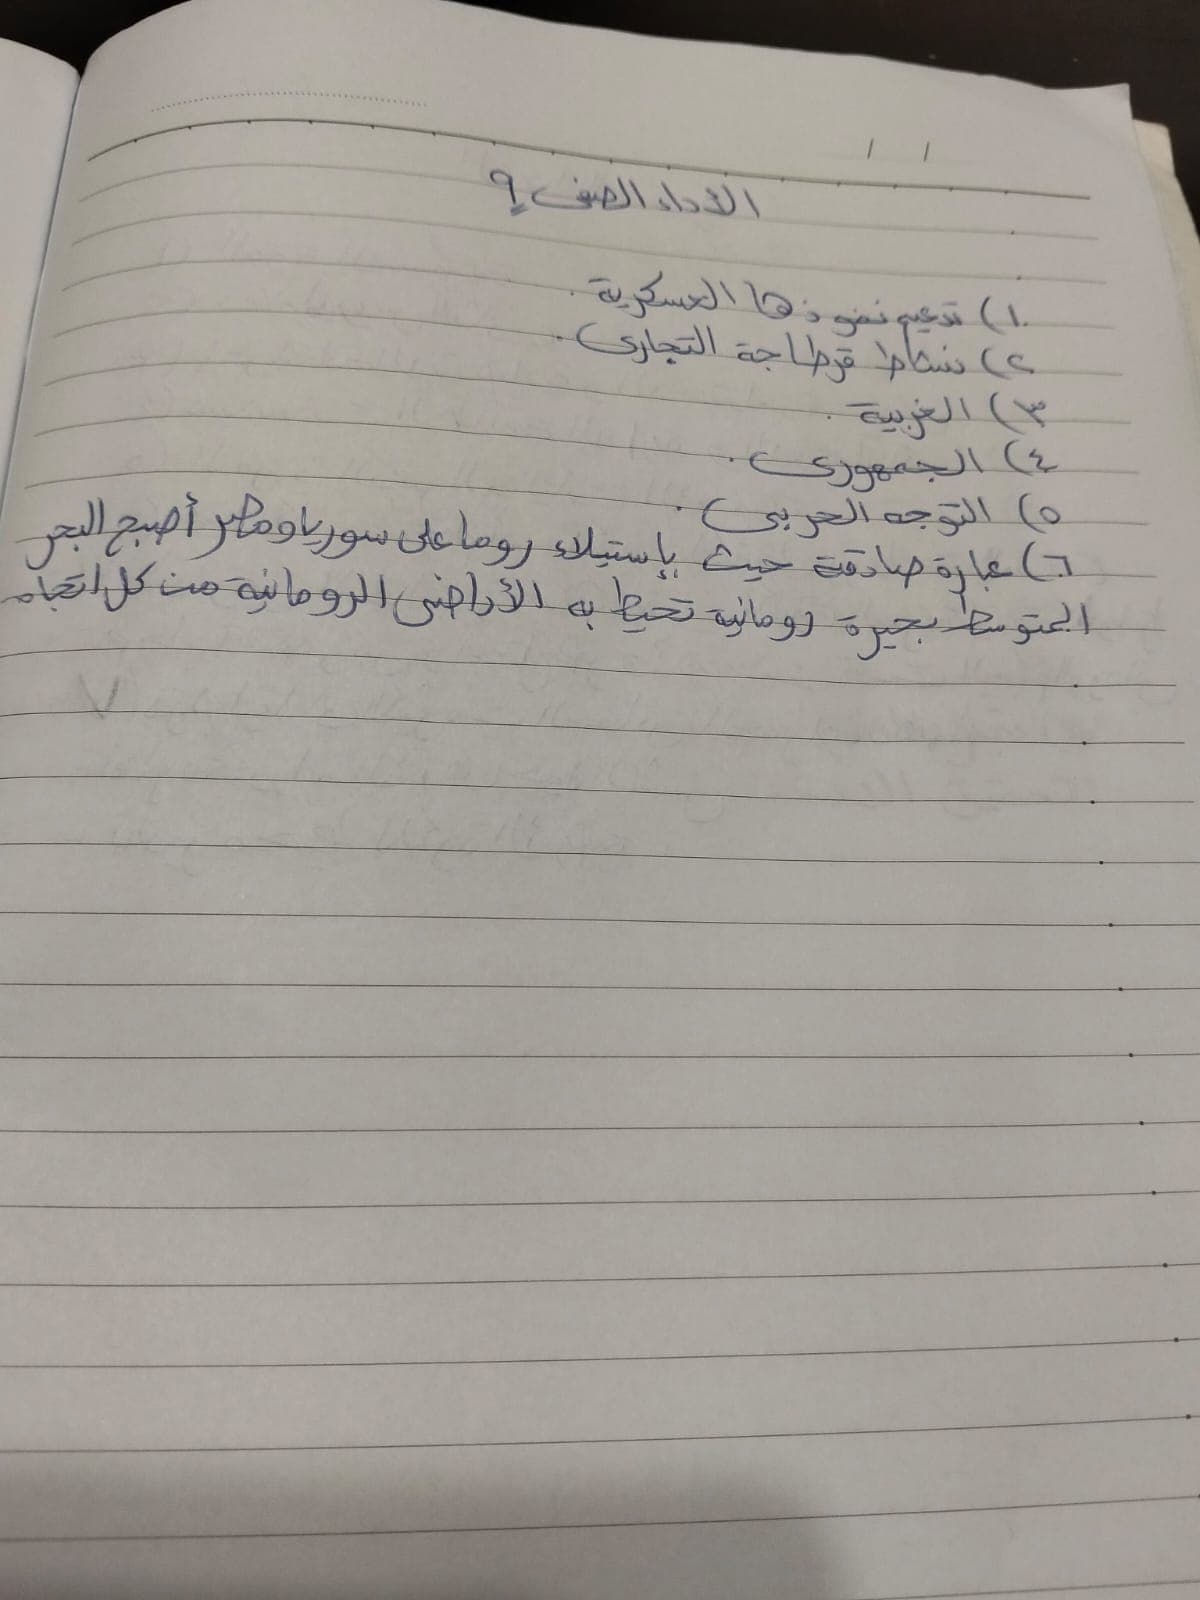 الأداء الصفى ٩
١) تدعيم نفوذها العسكرية.
٢) نشاط قرطاجة التجارى.
٣) الغربية.
٤) الجمهورى.
٥) التوجه الحربى.
٦) عبارة صادقة حيث بإستيلاء روما على سوريا ومصر أصبح البحر
المتوسط بحيرة رومانية تحيط به الأراضى الرومانية من كل اتجاه